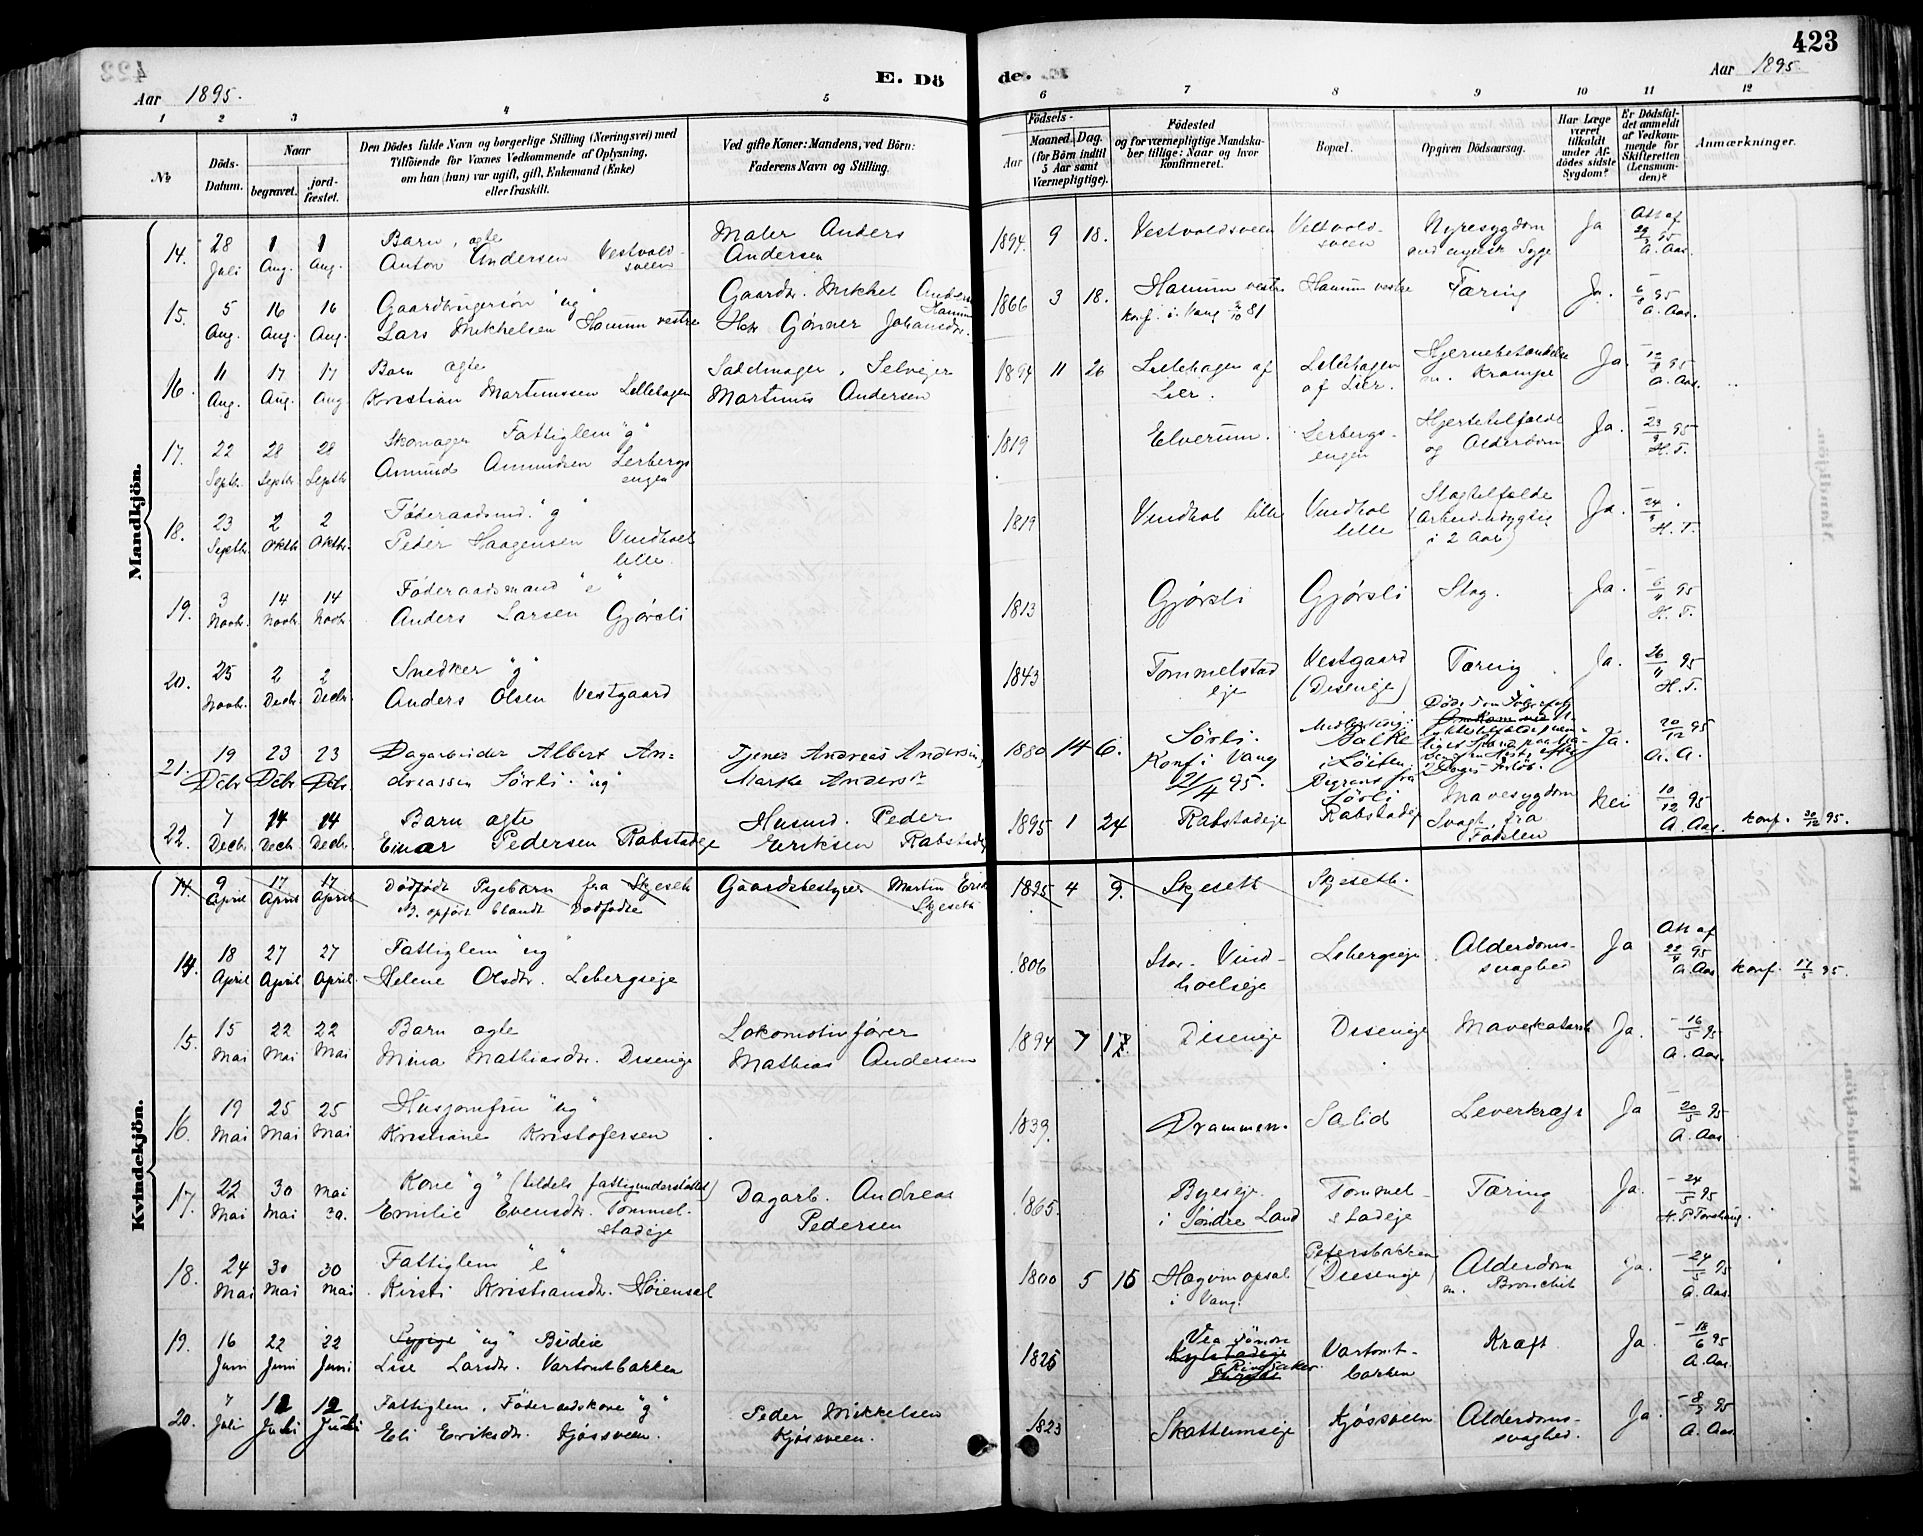 423
E. Dö de.
Aar 1895.
Aar 1895
1 2 3 4 5 6 7 8 9 10 11 12
№
Döds-Datum.
Naar
begravet.
jord-fæstet.
Den Dödes fulde Navn og borgerlige Stilling (Næringsvei) med
Tilföiende for Voxnes Vedkommende af Oplysning,
om han (hun) var ugift, gift, Enkemand (Enke)
eller fraskilt.
Ved gifte Koner: Mandens, ved Börn:
Faderens Navn og Stilling.
Födsels-
Aar
Maaned. Dag.
(for Börn indtil
5 Aar samt
Værnepligtige).
Födested
og for værnepligtige Mandska-
ber tillige: Naar og hvor
konfirmeret.
Bopæl.
Opgiven Dödsaarsag.
Har Læge
været
tilkaldt
under Af-
dödes sidste
Sygdom?
Er Dödsfal-
det anmeldt
af Vedkom-
mende for
Skifteretten
(Lensman-
den)?
Anmærkninger.
Mandkjön.
14. 28 Juli 1 Aug. 1 Aug. Barn, ægte Anton Andersen Vestvold-sveen Maler Anders Andersen 1894 9 18. Vestvoldsveen Vestvold-sveen Nyresygdom Ja Att af A. Aas.
15. 5 Aug. 16 Aug. 16 Aug. Gaardbrugersön "ug" Lars Mikkelsen Hamum vestre Gaardbr. Mikkel Anders 1866 3 18. Hamum vestre konf. i Vang 81 Hamum vestre Tæring Ja. 95 A. Aas.
16. 11 Aug. 17 Aug. 17 Aug Barn ægte Kristian Martinussen Lillehagen Sadelmager, Selveier Martinus Andersen 1894 11 26 Lillehagen af Lier. Lillehagen af Lier. Hjernebetændelse m. Krampe Ja. 95 A. Aas.
17. 22 Septbr. 28 Septbr. 28 Septbr Skomager Fattiglem "g" Amund Amundsen Lerbergs engen 1819 Elverum. Lerbergs-engen Hjertetilfælde og Alderdom Ja. 23/9 95 H. T.
18. 23 Septbr. 2 Oktbr. 2 Oktbr. Föderaadsmd. "g" Peder Haagensen Vindhol lille. 1819 Vindhol lille Vindhol lille Slagtilfælde (Arbeidsudygtig i 2 Aar) Ja. 24/9 H. T.
19. 3 Novbr. 14 Novbr. 14 Novbr. Föderaadsmand "e" Anders Larsen Gjörsli 1813 Gjörsli Gjörsli Slag. Ja. 6/11 95 H. T.
20. 25 Novbr. 2 Decbr. 2 Decbr. Snedker "g" Anders Olsen Vestgaard 1843 Tommelstad eje Vestgaard (Diseneje) Tæring Ja. 26/11 95 H. T.
21. 19 Debr 23 Debr 23 Debr. Dagarbeider Albert An-dreassen Sörli. "ug" Tjener Andreas Andersen, Marthe Andersdt 1880 14 6. Sörli. Konf. i Vang 21/4 95. Balke i Löiten. Sörli Ja. 20/12 95 A. A.
22. 7 Decbr. 14 Decbr. 14 Decbr. Barn ægte Einar Pedersen Rabstadeje Husmd. Peder Eriksen Rabstadeje 1895 1 24 Rabstadeje Rabstadeje Mavesygdom Svagh. fra Födslen Nei 10/12 95 A. Aas. konf. 30/12 95.
Kvindekjön.
14. 9 April 17 April 17 April Dödfödt Pigebarn fra Skjeseth N. opfört blandt Dödfödte Gaardsbestyrer Martin Erik Skjeseth 1895 4 9. Skjeseth Skjeseth.
14. 18 April 27 April 27 April. Fattiglem "ug" Helene Olsdtr. Lebergseje 1806 Stor-Vind-holseje Lebergseje Alderdoms-svaghed Ja Att af 22/4 95 A. Aas Konf. 17/5 95.
15. 15 Mai 22 Mai 22 Mai Barn ægte Mina Mathiasdtr. Diseneje Lokomotivförer Mathias Andersen 1894 7 Diseneje Diseneje Mavekatarrh Ja. 16/5 95 A. Aas.
16. 19 Mai 25 Mai 25 Mai Husjomfru "ug" Kristiane Kristofersen 1839. Drammen. Salid Leverkræft Ja 20/5 95 A. Aas.
17. 22 Mai 30 Mai Mai 30. Kone "g" (tildels fattigunderstöttet) Emilie Evensdtr. Tommel-stadeje Dagarb. Andreas Pedersen 1865. Byeseje. i Söndre Land Tommel-stadeje Tæring Ja. 24/5 95
18. 24 Mai 30 Mai 30 Mai. Fattiglem "e" Kirsti Kristiansdtr. Höiensal 1800 5 15 Hagvinopsal i Vang. Petersbakken (Diseneje) Alderdom m. Bronchit Ja. 24/5 95 A. Aas.
19. 16 Juni 22 Juni 22 Juni Sypige "ug" Budeie Lise Larsdtr. Vartomtbakken 1825 Vea Söndre Ringsaker. Vartomt-bakken Kræft Ja. 18/6 95 A. Aas.
20. 7 Juli 12 Juli 12 Juli Fattiglem, Föderaadskone "g" Eli Eriksdtr. Kjösveen. Peder Mikkelsen Kjösveen. 1823 Skattumseje Kjösveen Alderdoms-svaghed. Ja. 8/7 95 A. Aas